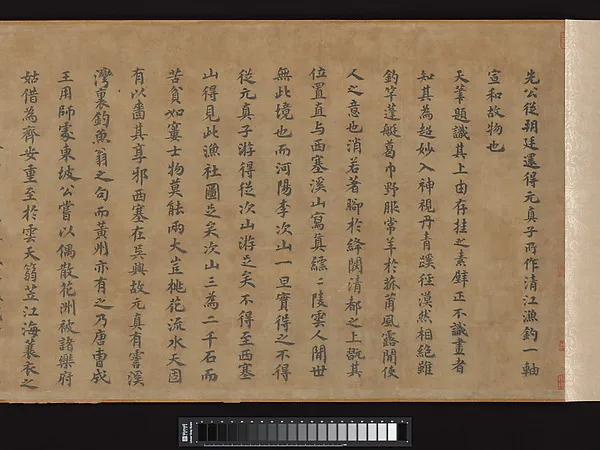 先公從朔廷還得元真子所作清江漁釣一軸
宣和故物也
天筆題識其上由存挂之素壁正不識畫者
知其為超妙入神視丹青蹊徑漠然相絕雖
釣竿蓬艇葛巾野服常羊於菰蒲風露間使
人之意也消若著腳於絳闕清都之上甑其
位置直与西塞溪山寫真繻二陵雲人間世
無此境也而河陽李次山一旦實得之不得
從元真子游得從次山游足矣不得至西塞
山得見此漁社圖足矣次山三為二千石而
苦貧如寠士物莫能兩大豈桃花流水天固
有以嗇其享邪西塞在吳興故元真有霅溪
灣裏釣魚翁之句而黃州亦有之乃唐曹成
王用師處東坡公嘗以偶散花洲被諸樂府
姑借為齊安重至於雲天翁笠江海蓑衣之